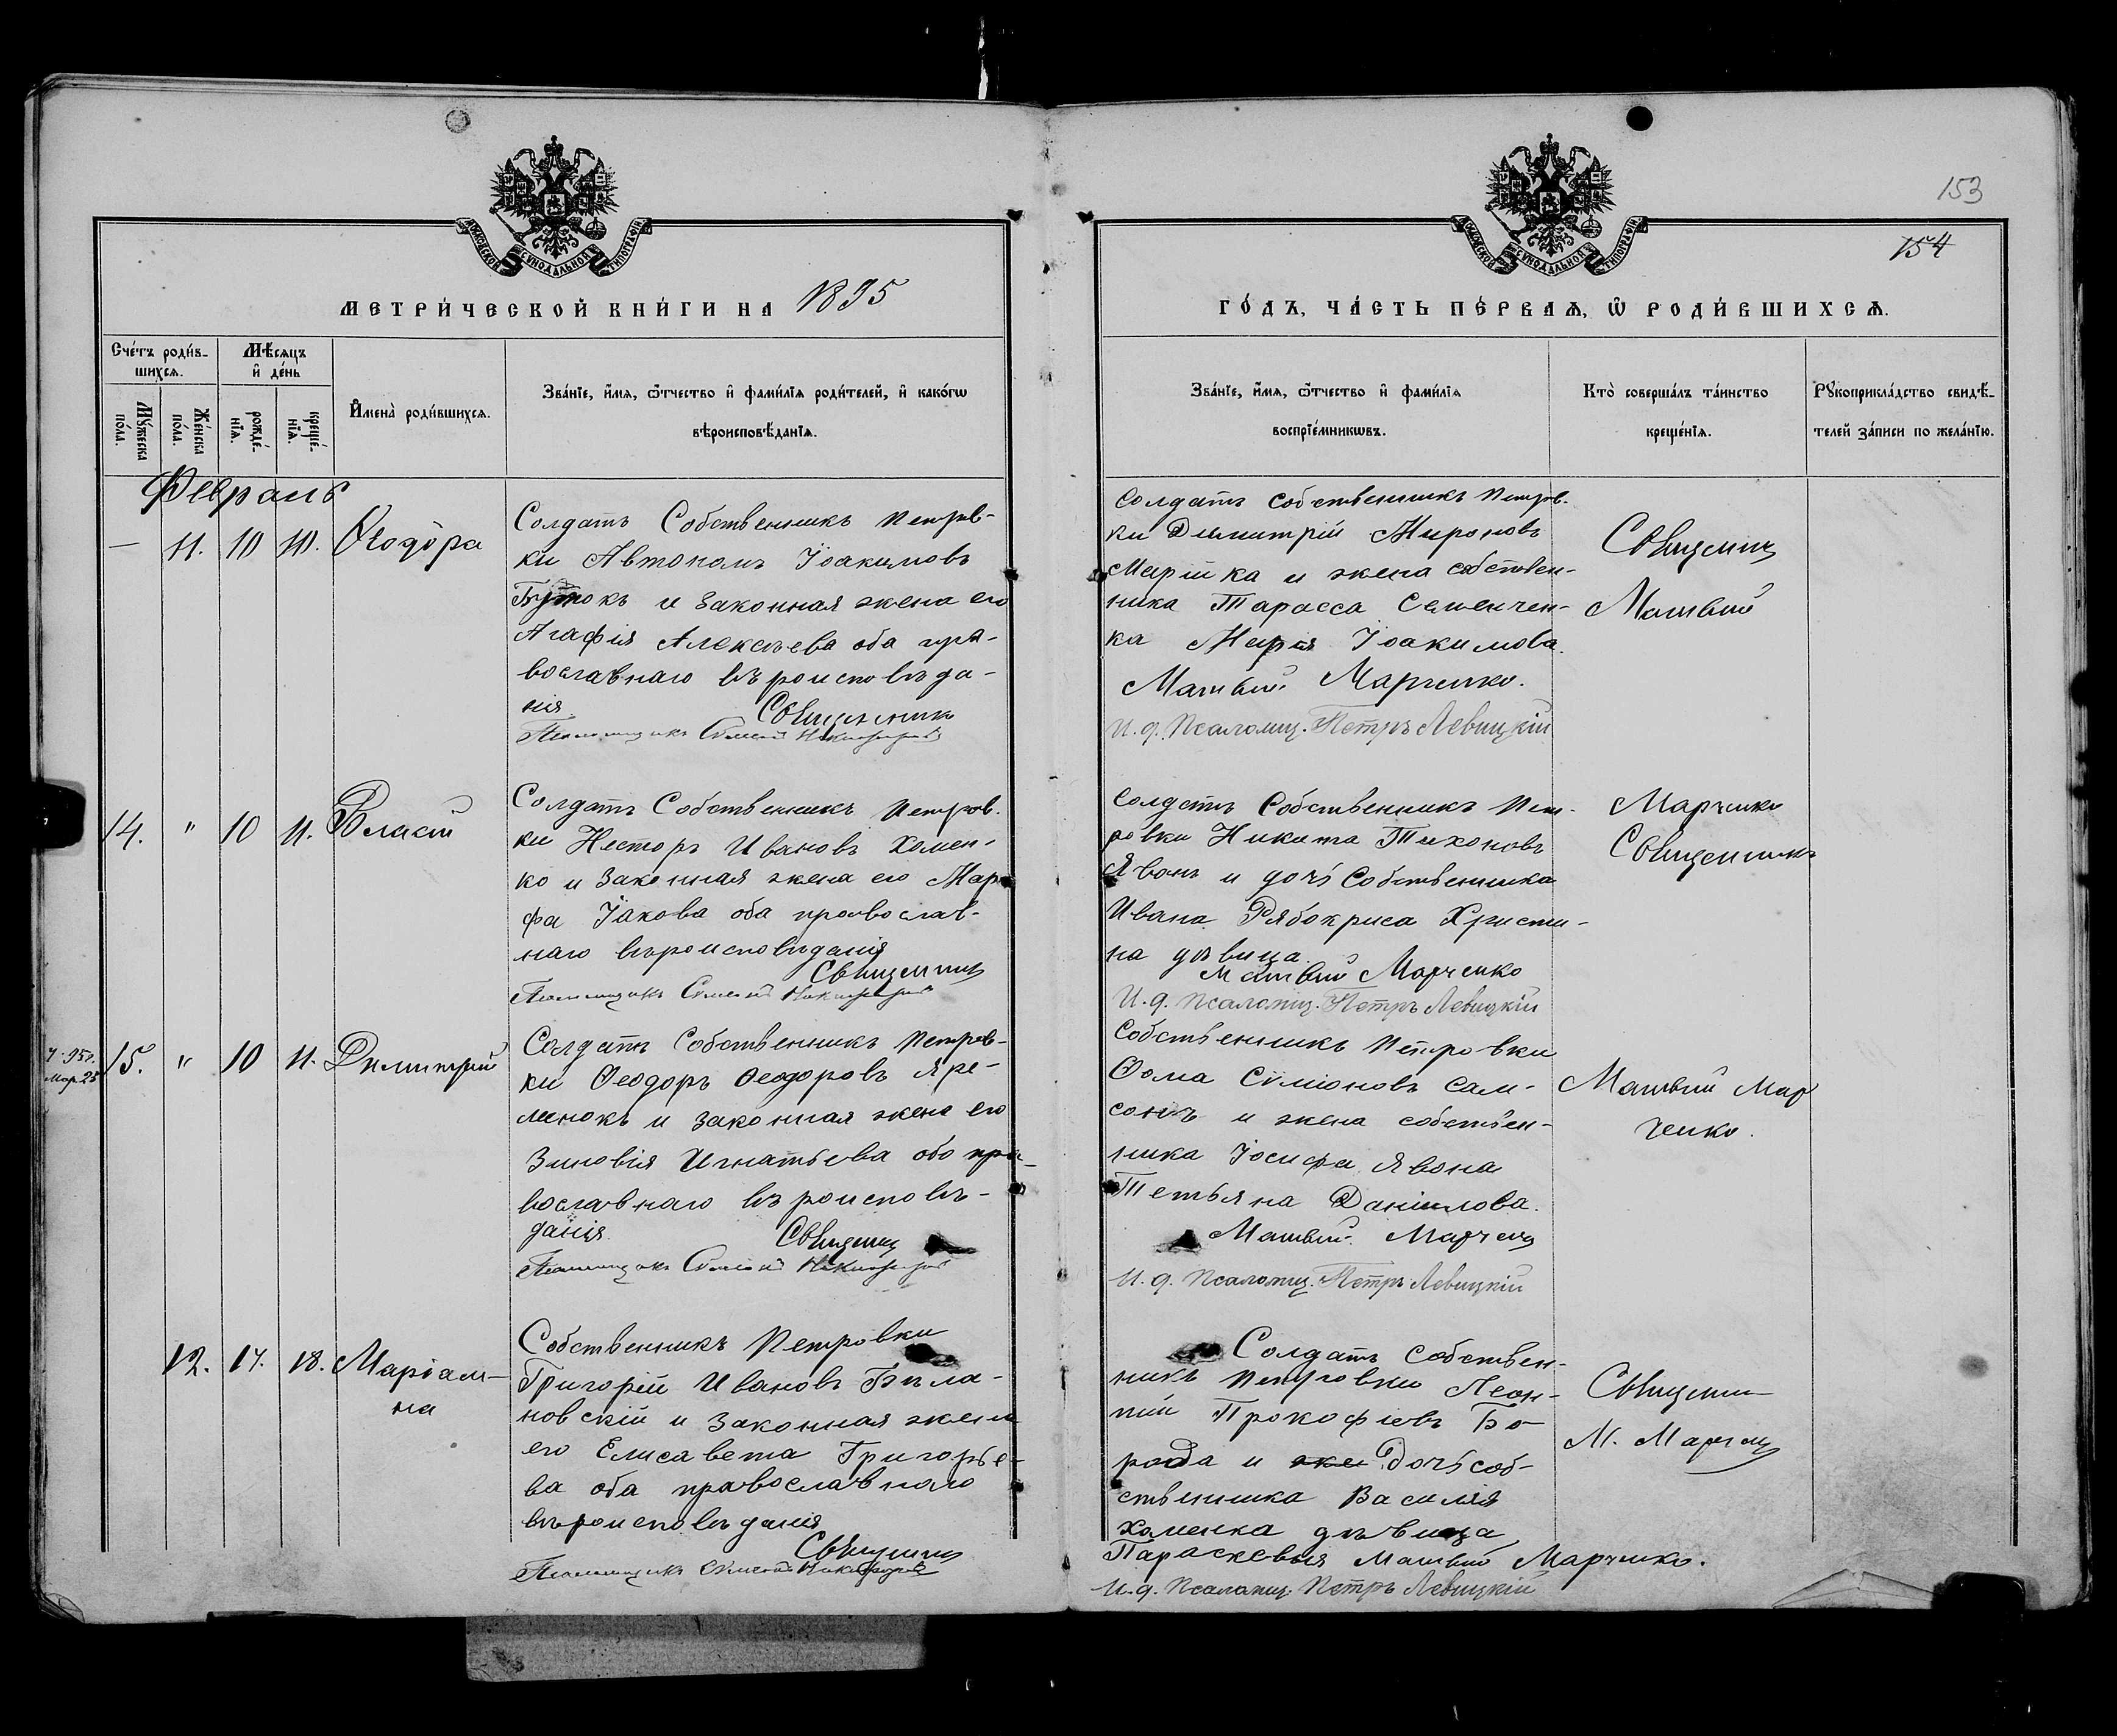 153
154
МОСКОВСКОЙ СѴНОДАЛЬНОЙ ТИПОГРАФІИ
МОСКОВСКОЙ СѴНОДАЛЬНОЙ ТИПОГРАФІИ
МЕТРИ́ЧЕСКОЙ КНИ́ГИ НА 1895
ГО́ДЪ, ЧА́СТЬ ПЕ́РВАѦ, Ѿ РОДИ́ВШИХСѦ.
Счéтъ роди́в-
шихсѧ.
Мѣ́сѧцъ
и҆ дéнь
Мꙋ́жеска
по́ла.
Же́нска
по́ла.
рожде́-
нїѧ.
креще́-
нїѧ.
И҆мена̀ роди́вшихсѧ.
Зва́нїе, и҆́мѧ, ѻ҆́тчество и҆ фами́лїѧ роди́телей, и҆ како́гѡ
вѣроисповѣ́данїѧ.
Зва́нїе, и҆́мѧ, ѻ҆́тчество и҆ фами́лїѧ
воспрїе́мникѡвъ.
Кто̀ соверша́лъ та́инство
креще́нїѧ.
Рꙋкоприкла́дство свидѣ́-
телей за́писи по жела́нїю.
Февраль
— 11. 10 10. Ѳеодо́ра
Солдатъ Собственникъ Петров-
ки Автономъ Іоакимовъ
Бутокъ и законная жена его
Агафія Алексѣева оба пра-
вославнаго вѣроисповѣда-
нія. Священникъ
Псаломщикъ Сѵмеонъ Никифоровъ
Солдатъ Собственникъ Петров.
ки Димитрій Мироновъ
и жена собствен-
ника Тарасса Семенчен-
ка Марія Іоакимова.
Матвѣй Марченко.
И. д. Псаломщ. Петръ Левицкій
Священ
Матвѣй
14. " 10 11. Власій
Солдатъ Собственникъ Петров.
ки Несторъ Ивановъ Хомен-
ко и законная жена его Мар
фа Іакова оба православ-
наго вѣроисповѣданія
Священник
Псаломщикъ Сѵмеонъ Никифоровъ
Солдатъ Собственникъ Пет-
ровки Никита Тихоновъ
Явонъ и дочь Собственника
Ивана Рябокриса Христи-
на дѣвица.
Матвѣй Марченко
И. д. Псаломщ. Петръ Левицкій
Марченко
Священникъ
Мар. 25
15. " 10 11. Димитрій
Солдатъ Собственникъ Петров-
ки Ѳеодоръ Ѳеодоровъ Яре-
менокъ и законная жена его
Зиновія Игнатьева оба пра-
вославнаго вѣроисповѣ-
данія. Священ
Псаломщикъ Сѵмеонъ Никифоровъ
Собственникъ Петровки
Ѳома Сѵміоновъ Сам-
сонъ и жена собствен-
ника Іосифа Явона
Тетьяна Даніилова.
Матвѣй Марченк
И. д. Псаломщ. Петръ Левицкій
Матвѣй Мар
ченко.
12. 17. 18. Маріам-
на
Собственникъ Петровки
Григорій Ивановъ Бѣла-
новскій и законная жена
его Елисавета Григорье-
ва оба православнаго
вѣроисповѣданія
Священн
Псаломщикъ Сѵмеонъ Никифоровъ
Солдатъ Собствен-
никъ Петровки Леон-
тий Прокофіевъ Бо-
рода и же Дочь соб-
ственника Василія
Хоменка дѣвица
Параскевія Матвѣй Марченко.
И. д. Псаломщ. Петръ Левицкій
Священ
М. Марченк